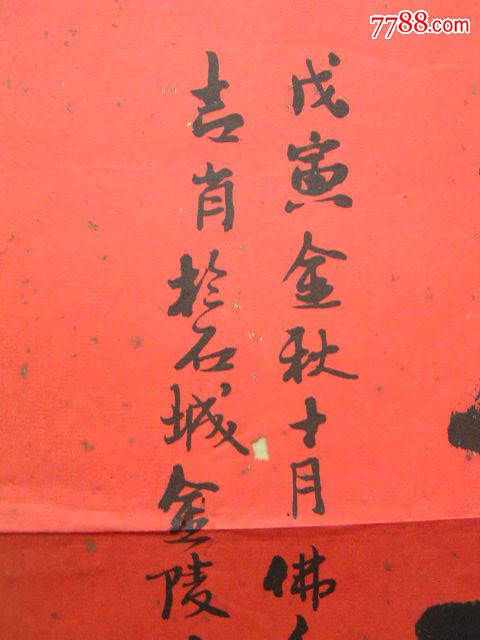 7788.com
戊寅金秋十月佛
吉肖於石城金陵